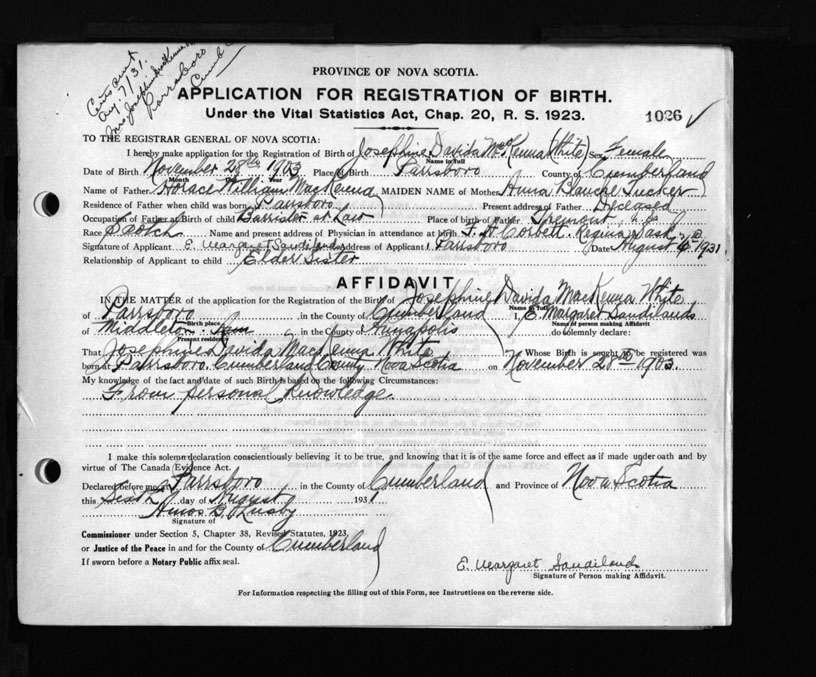 Cert. sent
Aug. 7/31.
Mrs Josephine MacKenna
Parrsboro
Cumb Co
PROVINCE OF NOVA SCOTIA.
APPLICATION FOR REGISTRATION OF BIRTH.
Under the Vital Statistics Act, Chap. 20, R. S. 1923.
1026 ✓
TO THE REGISTRAR GENERAL OF NOVA SCOTIA:
I hereby make application for the Registration of Birth of Josephine Davida MacKenna (White) Sex Female
Name in full
Date of Birth November 28th 1903 Place of Birth Parrsboro County of Cumberland
Month Day Year
Name of Father Horace William MacKenna MAIDEN NAME of Mother Anna Tucker
Residence of Father when child was born Parrsboro Present address of Father Deceased
Occupation of Father at Birth of child Barrister at Law Place of birth of Father Tremont
Race Scotch Name and present address of Physician in attendance at birth F. A. Corbett. Regina Sask
Signature of Applicant E. Margaret Sandilands Address of Applicant Parrsboro Date August 6 1931
Relationship of Applicant to child Elder Sister
AFFIDAVIT
IN THE MATTER of the application for the Registration of the Birth of Josephine Davida MacKenna White
Name in full
of Parrsboro in the County of Cumberland I, E. Margaret Sandilands
Birth place Name of person making Affidavit
of Middleton in the County of Annapolis do solemnly declare:
Present residence
That Josephine Davida MacKenna White Whose Birth is sought to be registered was
born at Parrsboro Cumberland County Nova Scotia on November 28th 1903.
My knowledge of the fact and date of such Birth is based on the following Circumstances:
From personal knowledge.
I make this solemn declaration conscientiously believing it to be true, and knowing that it is of the same force and effect as if made under oath and by
virtue of The Canada Evidence Act.
Declared before me at Parrsboro in the County of Cumberland and Province of Nova Scotia
this Sixth day of August 1931
Amos B. Lusby
Signature of
Commissioner under Section 5, Chapter 38, Revised Statutes, 1923.
or Justice of the Peace in and for the County of Cumberland
If sworn before a Notary Public affix seal.
E. Margaret Sandilands
Signature of Person making Affidavit.
For Information respecting the filling out of this Form, see Instructions on the reverse side.